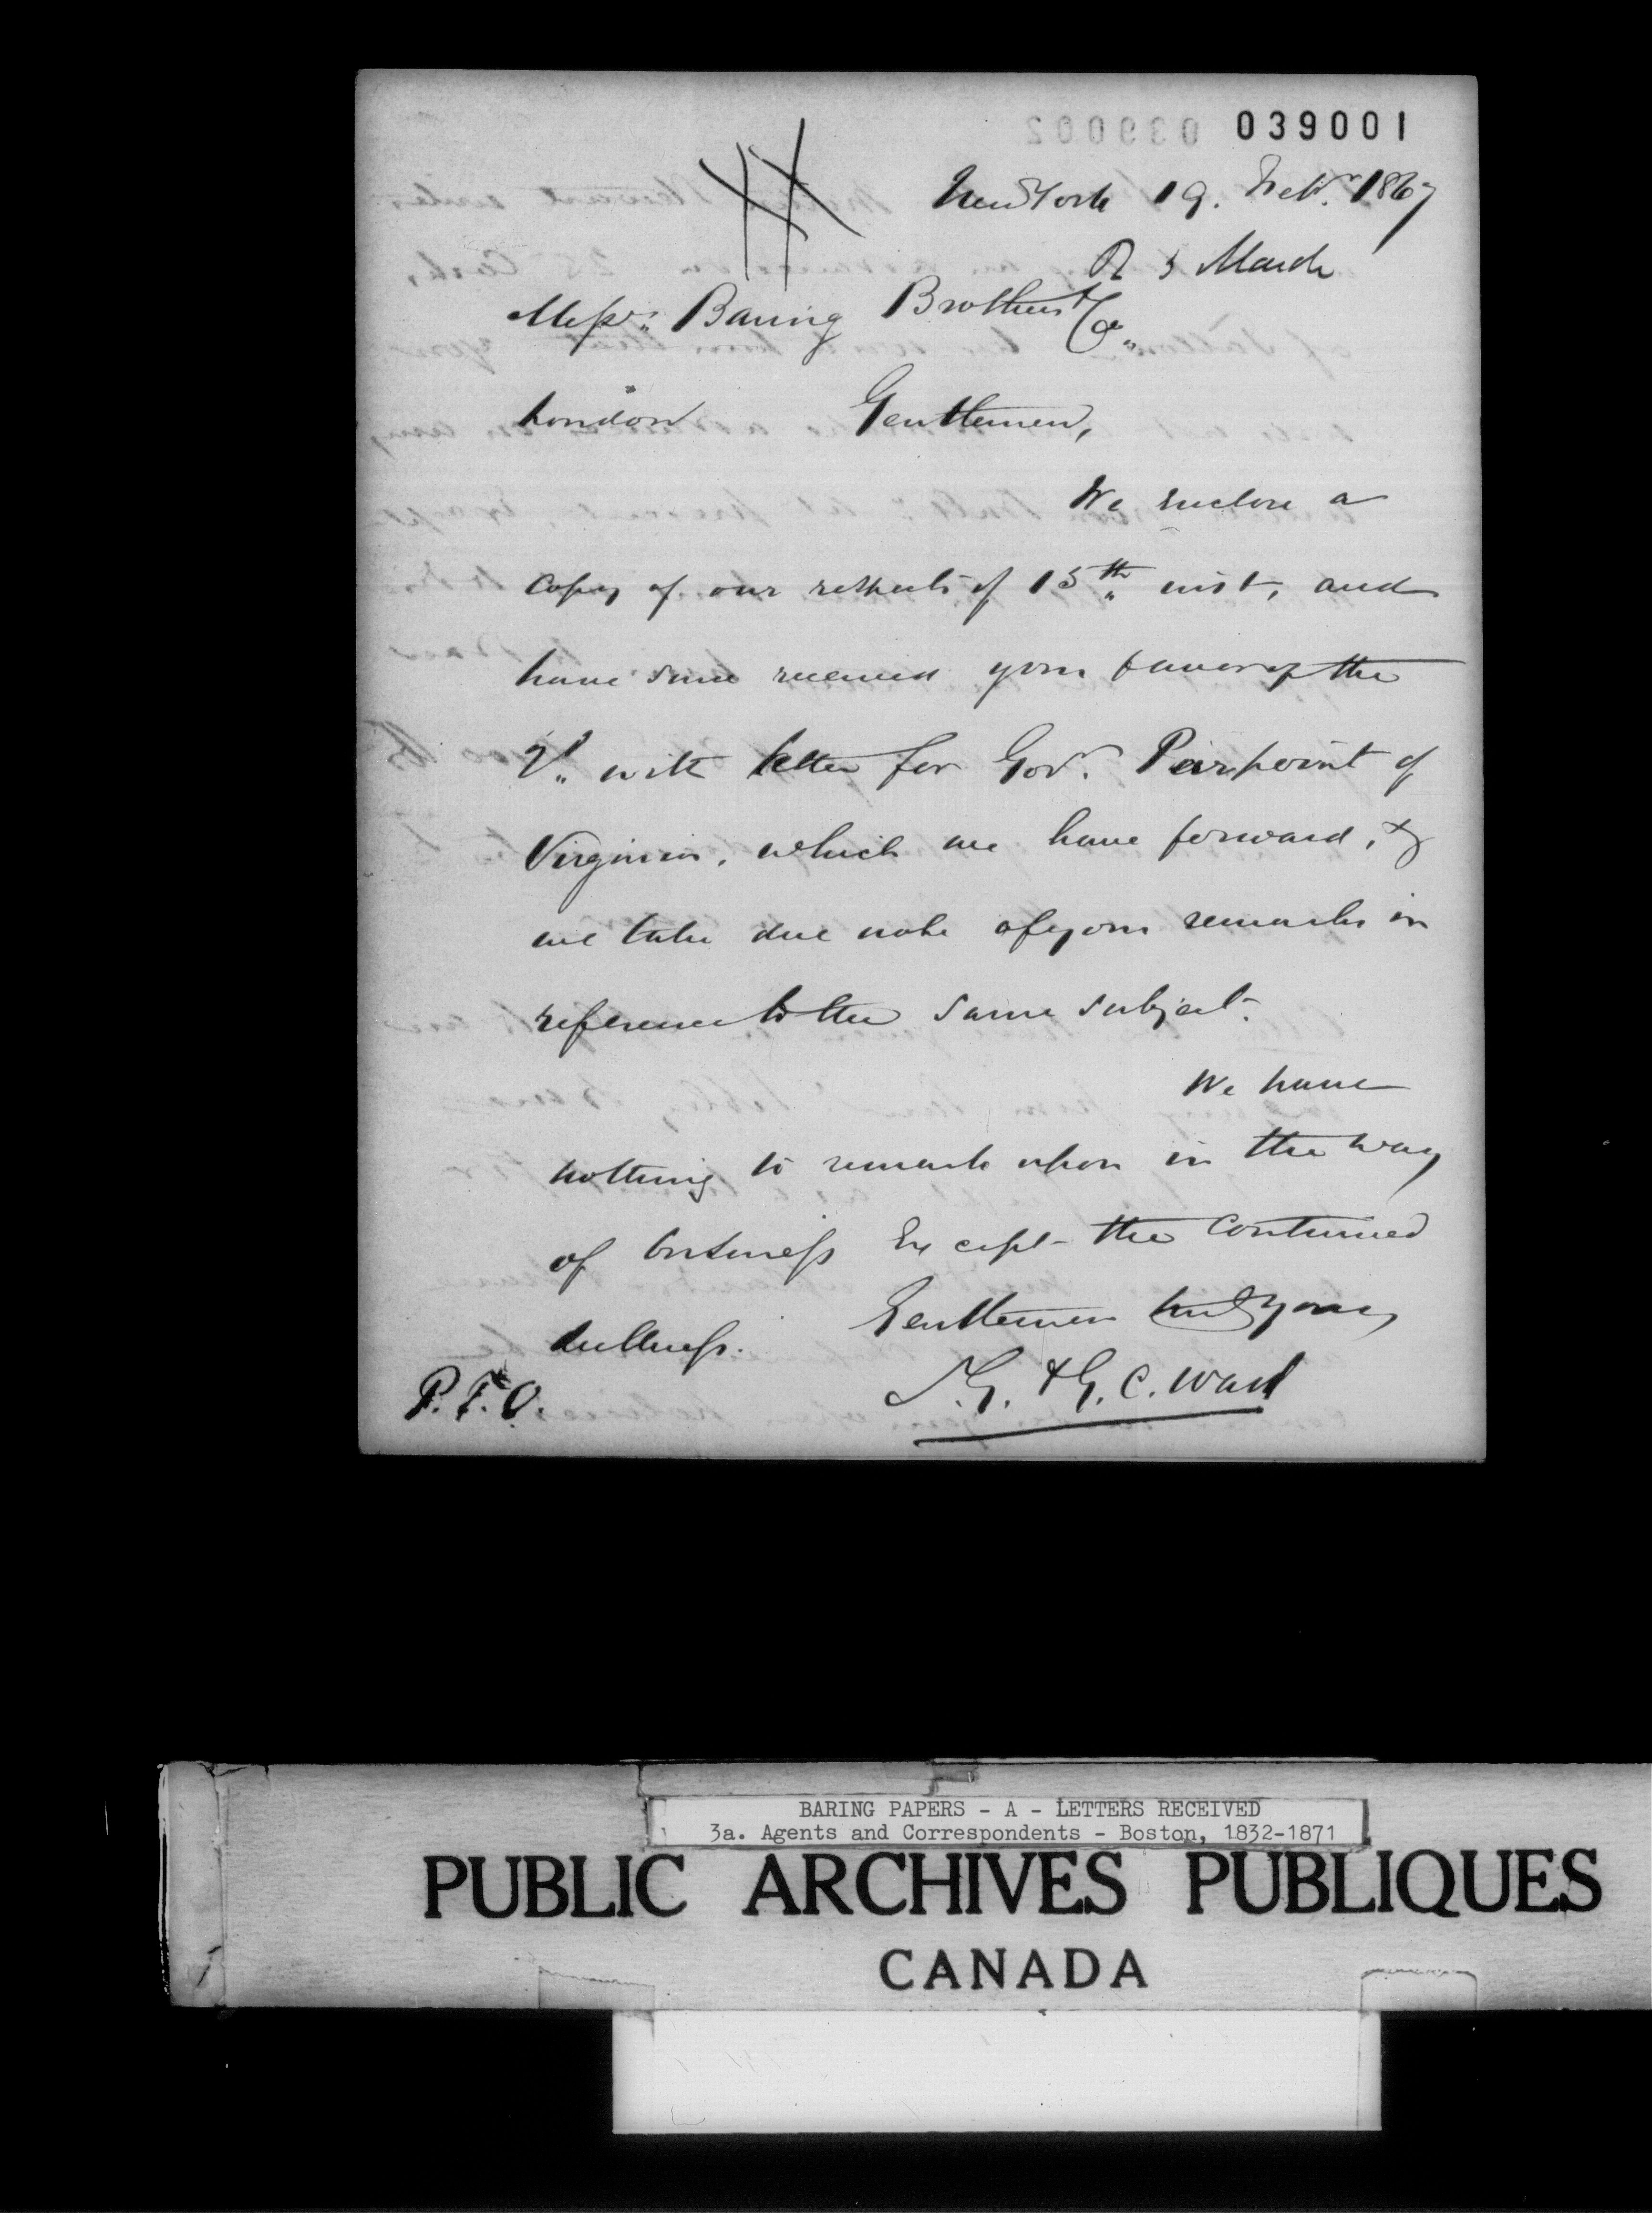 039001
New York 19. Feb. 1867
R 5 March
Messrs. Baring Brothers & Co.
London Gentlemen,
We enclose a
copy of our respects of 15th inst, and
have since received your favor of the
2d with letter for Gov. Peirpoint of
Virginia, which we have forward, &
we take due note of your remarks in
reference to the same subject.
We have
nothing to remark upon in the way
of business Except the continued
dullness. Gentlemen Yours
S.G. & G.C. Ward
P.T.O.
BARING PAPERS - A - LETTERS RECEIVED
3a. Agents and Correspondents - Boston, 1832-1871
PUBLIC ARCHIVES PUBLIQUES
CANADA